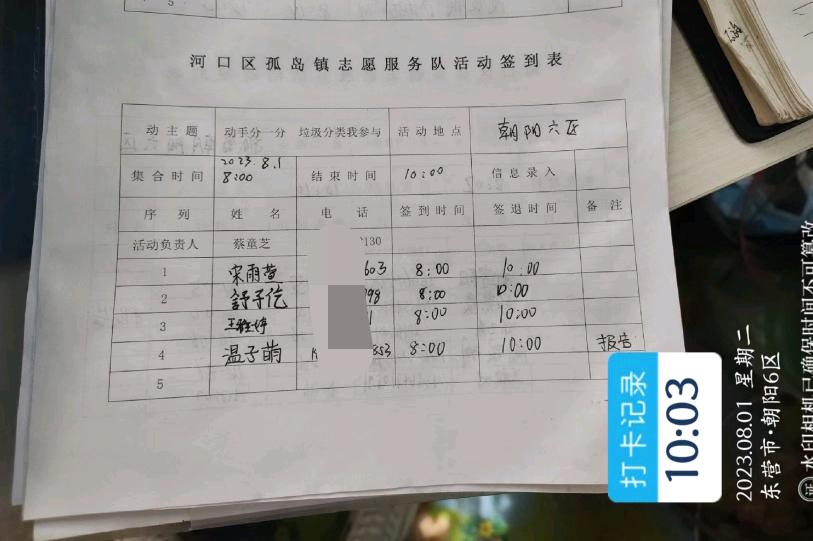 5
河口区孤岛镇志愿服务队活动签到表
动主题 动手分一分 垃圾分类我参与 活动地点 朝阳六区
集合时间 2023.8.1 8:00 结束时间 10:00 信息录入
序列 姓名 电话 签到时间 签退时间 备注
活动负责人 蔡童芝 130
1 宋雨萱 603 8:00 10:00
2 舒子信 798 8:00 10:00
3 1 8:00 10:00
4 温子萌 853 8:00 10:00 报告
5
打卡记录
10:03
2023.08.01 星期二
东营市·朝阳6区
水印相机已确保时间不可篡改